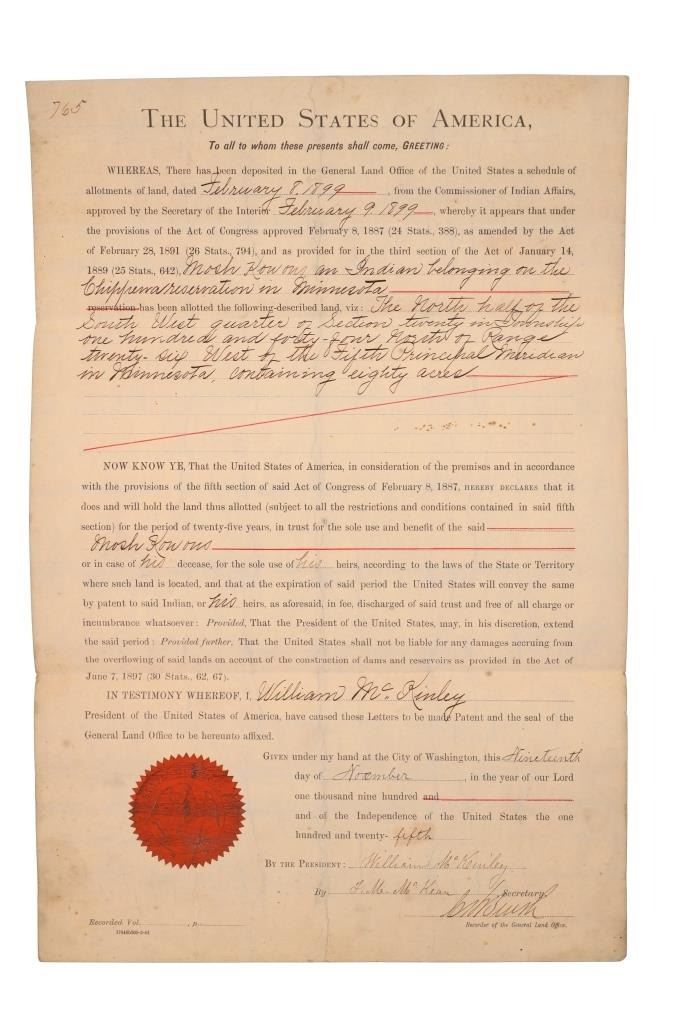 765
THE UNITED STATES OF AMERICA,
To all to whom these presents shall come, GREETING:
WHEREAS, There has been deposited in the General Land Office of the United States a schedule of
allotments of land, dated February 8. 1899, from the Commissioner of Indian Affairs,
approved by the Secretary of the Interior February 9. 1899, whereby it appears that under
the provisions of the Act of Congress approved February 8, 1887 (24 Stats., 388), as amended by the Act
of February 28, 1891 (26 Stats., 794), and as provided for in the third section of the Act of January 14,
1889 (25 Stats., 642), Mosh Kowons an Indian belonging on the
Chippewa reservation in Minnesota
reservation has been allotted the following-described land, viz: The North half of the
South West quarter of Section twenty in Township
one hundred and forty-four North of Range
twenty-six West of the Fifth Principal Meridian
in Minnesota, containing eighty acres
NOW KNOW YE, That the United States of America, in consideration of the premises and in accordance
with the provisions of the fifth section of said Act of Congress of February 8, 1887, HEREBY DECLARES that it
does and will hold the land thus allotted (subject to all the restrictions and conditions contained in said fifth
section) for the period of twenty-five years, in trust for the sole use and benefit of the said
Mosh Kowons
or in case of his decease, for the sole use of his heirs, according to the laws of the State or Territory
where such land is located, and that at the expiration of said period the United States will convey the same
by patent to said Indian, or his heirs, as aforesaid, in fee, discharged of said trust and free of all charge or
incumbrance whatsoever: Provided, That the President of the United States, may, in his discretion, extend
the said period: Provided further, That the United States shall not be liable for any damages accruing from
the overflowing of said lands on account of the construction of dams and reservoirs as provided in the Act of
June 7, 1897 (30 Stats., 62, 67).
IN TESTIMONY WHEREOF, I, William McKinley
President of the United States of America, have caused these Letters to be made Patent and the seal of the
General Land Office to be hereunto affixed.
GIVEN under my hand at the City of Washington, this Nineteenth
day of November, in the year of our Lord
one thousand nine hundred and
and of the Independence of the United States the one
hundred and twenty-fifth
BY THE PRESIDENT: William McKinley
By F. M. McKean Secretary.
Recorder of the General Land Office.
Recorded Vol. , p.